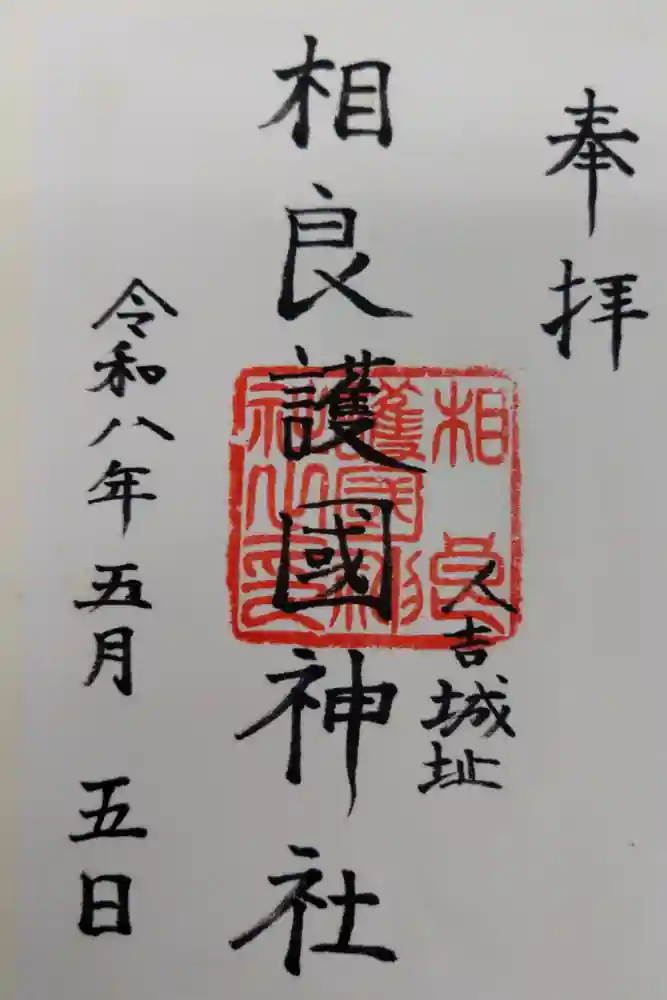 奉拝
人吉城址
相良護國神社
令和八年五月五日
相良
護國神
社之印